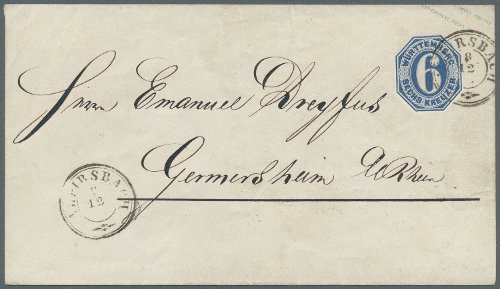 WÜRTTEMBERG
6
SECHS KREUZER
8
12
Herrn Emanuel Dreyfus
Germersheim a/Rhein
12